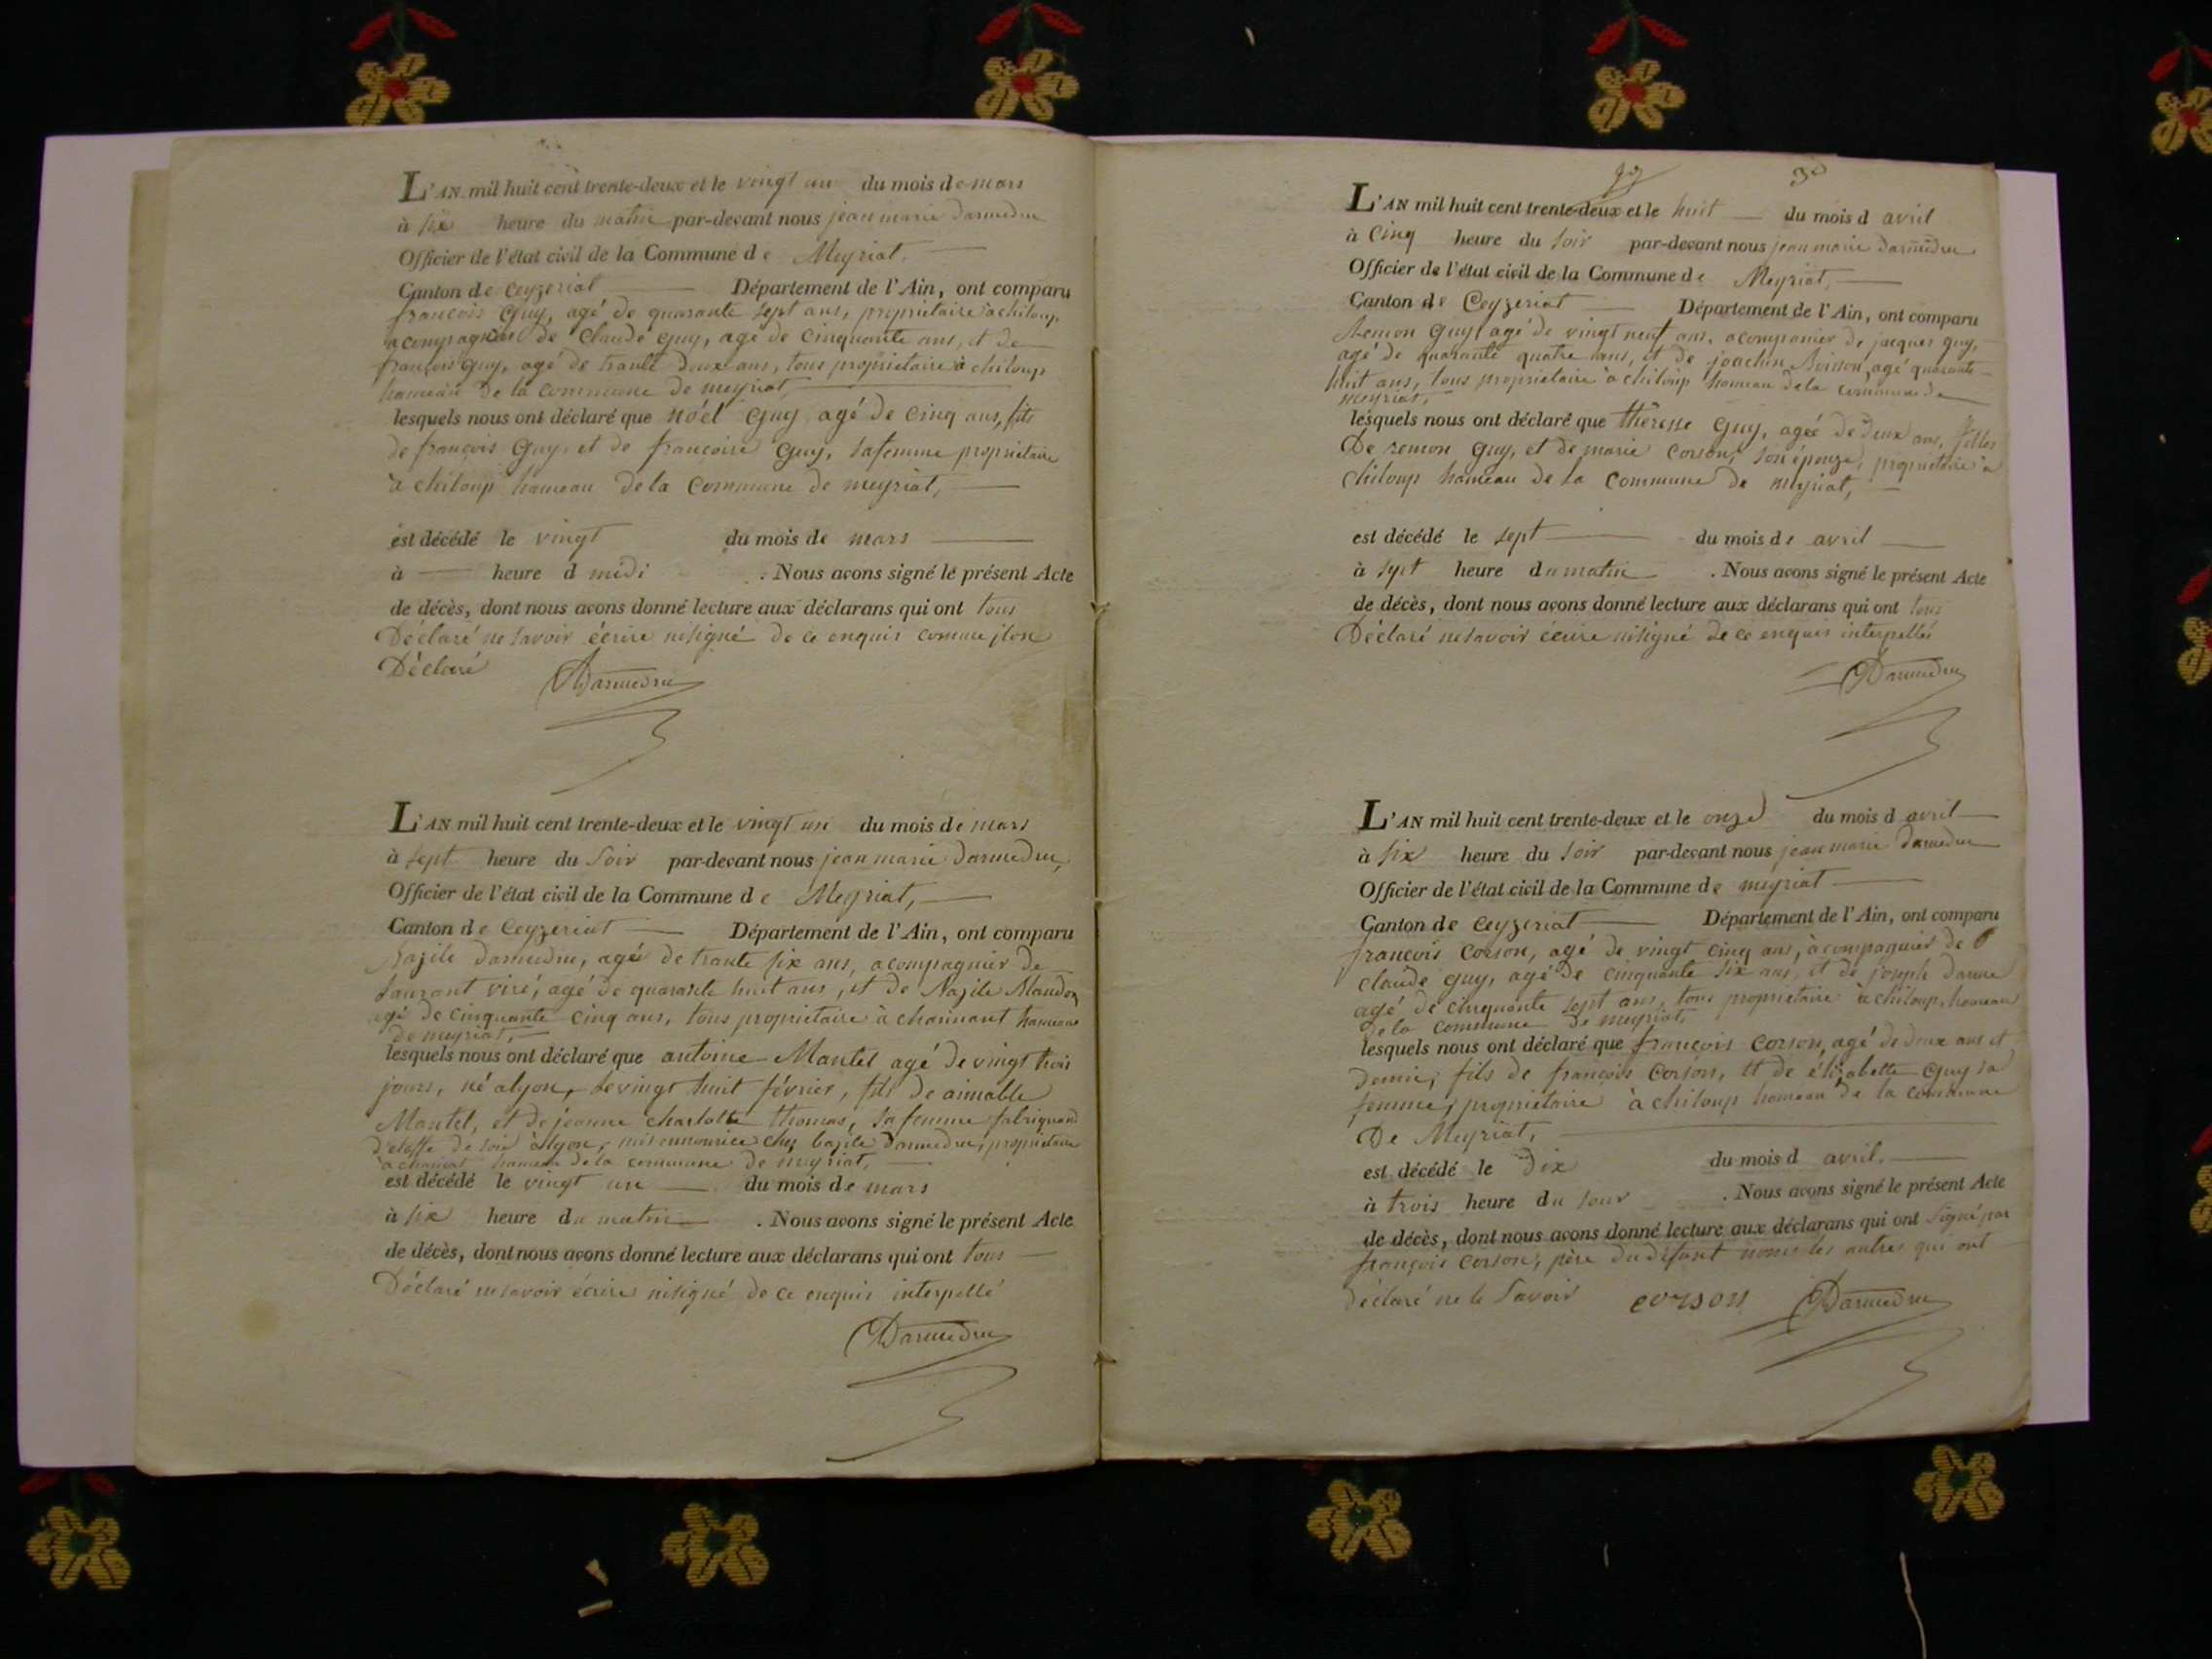 L'AN mil huit cent trente-deux et le vingt un du mois de mars
à six heure du matin par-devant nous jean marie Darmedru
Officier de l'état civil de la Commune de Meyriat.
Canton de Ceyzeriat Département de l'Ain, ont comparu
françois Guy, agé de quarante sept ans, propriétaire à chiloup
acompagnier de Claude Guy, agé de cinquante ans, et de
françois Guy, agé de trante deux ans, tous propriétaire à chiloup
hameau de la commune de meyriat,
lesquels nous ont déclaré que nóél Guy agé de cinq ans, fils
de françois Guy, et de francoise Guy, sa femme propriétaire
à chiloup hameau de la Commune de meyriat,
est décédé le vingt du mois de mars
à heure d midi . Nous avons signé le présent Acte
de décès, dont nous avons donné lecture aux déclarans qui ont tous
Déclaré ne savoir écrire nisigné de ce enquis comme ilon
Déclaré Darmedru
L'AN mil huit cent trente-deux et le vingt un du mois de mars
à sept heure du soir par-devant nous jean marie Darmedru,
Officier de l'état civil de la Commune de Meyriat,
Canton de Ceyzeriat Département de l'Ain, ont comparu
Bazile Darmedru, agé de trante six ans, acompagnier de
Laurant viré, agé de quarante huit ans, et de Bazile
agé de cinquante cinq ans, tous propriétaire à hameau
de meyriat,
lesquels nous ont déclaré que antoine Mantel agé de vingt trois
jours, né alyon, le vingt huit février, fils de aimable
Mantel, et de jeanne charlotte thomas, sa femme fabriquand
d'étoffe de soie à lyon, mis ennourice chez bazile Darmedru, propriétaire
à hameau de la commune de meyriat,
est décédé le vingt un du mois de mars
à six heure du matin . Nous avons signé le présent Acte
de décès, dont nous avons donné lecture aux déclarans qui ont tous
Déclaré ne savoir écrire nisigné de ce enquis interpellé
Darmedru
30
L'AN mil huit cent trente-deux et le huit du mois d avril
à Cinq heure du soir par-devant nous jean marie Darmedru
Officier de l'état civil de la Commune de Meyriat,
Canton de Ceyzeriat Département de l'Ain, ont comparu
Guy, agé de vingt neuf ans, acompanier de jacques guy,
agé de quarante quatre ans, et de joachin agé quarante
huit ans, tous propriétaire à chiloup hameau de la commune de
meyriat,
lesquels nous ont déclaré que thérèsse Guy, agée de deux ans, filles
De Guy, et de marie Corson, son épouze, propriétaire à
chiloup hameau de la commune de meyriat,
est décédé le sept du mois de avril
à sept heure du matin . Nous avons signé le présent Acte
de décès, dont nous avons donné lecture aux déclarans qui ont tous
Déclaré ne savoir écrire nisigné de ce enquis interpellés
Darmedru
L'AN mil huit cent trente-deux et le onze du mois d avril
à six heure du soir par-devant nous jean marie Darmedru
Officier de l'état civil de la Commune de meyriat
Canton de Ceyzeriat Département de l'Ain, ont comparu
françois Corson, agé de vingt cinq ans, àcompagnier de
claude guy, agé de cinquante six ans, et de joseph
agé de cinquante sept ans, tous propriétaire à chiloup, hameau
de la commune de meyriat,
lesquels nous ont déclaré que françois Corson, agé de deux ans et
demie, fils de françois Corson, et de élizabette Guy sa
femme, propriétaire à chiloup hameau de la commune
De Meyriat,
est décédé le Dix du mois d avril.
à trois heure du . Nous avons signé le présent Acte
de décès, dont nous avons donné lecture aux déclarans qui ont signé par
françois Corson, père du défunt les autres qui ont
déclaré ne le savoir corson Darmedru